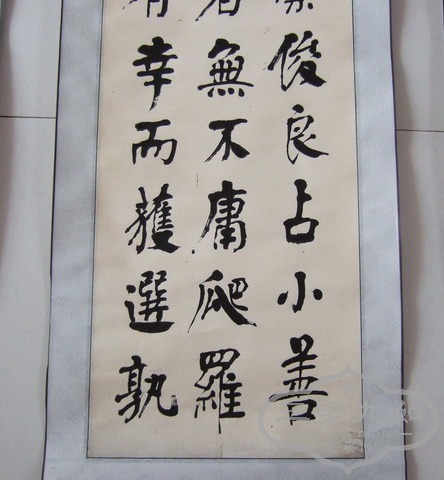 俊良占小善
者無不庸爬羅
有幸而獲選孰